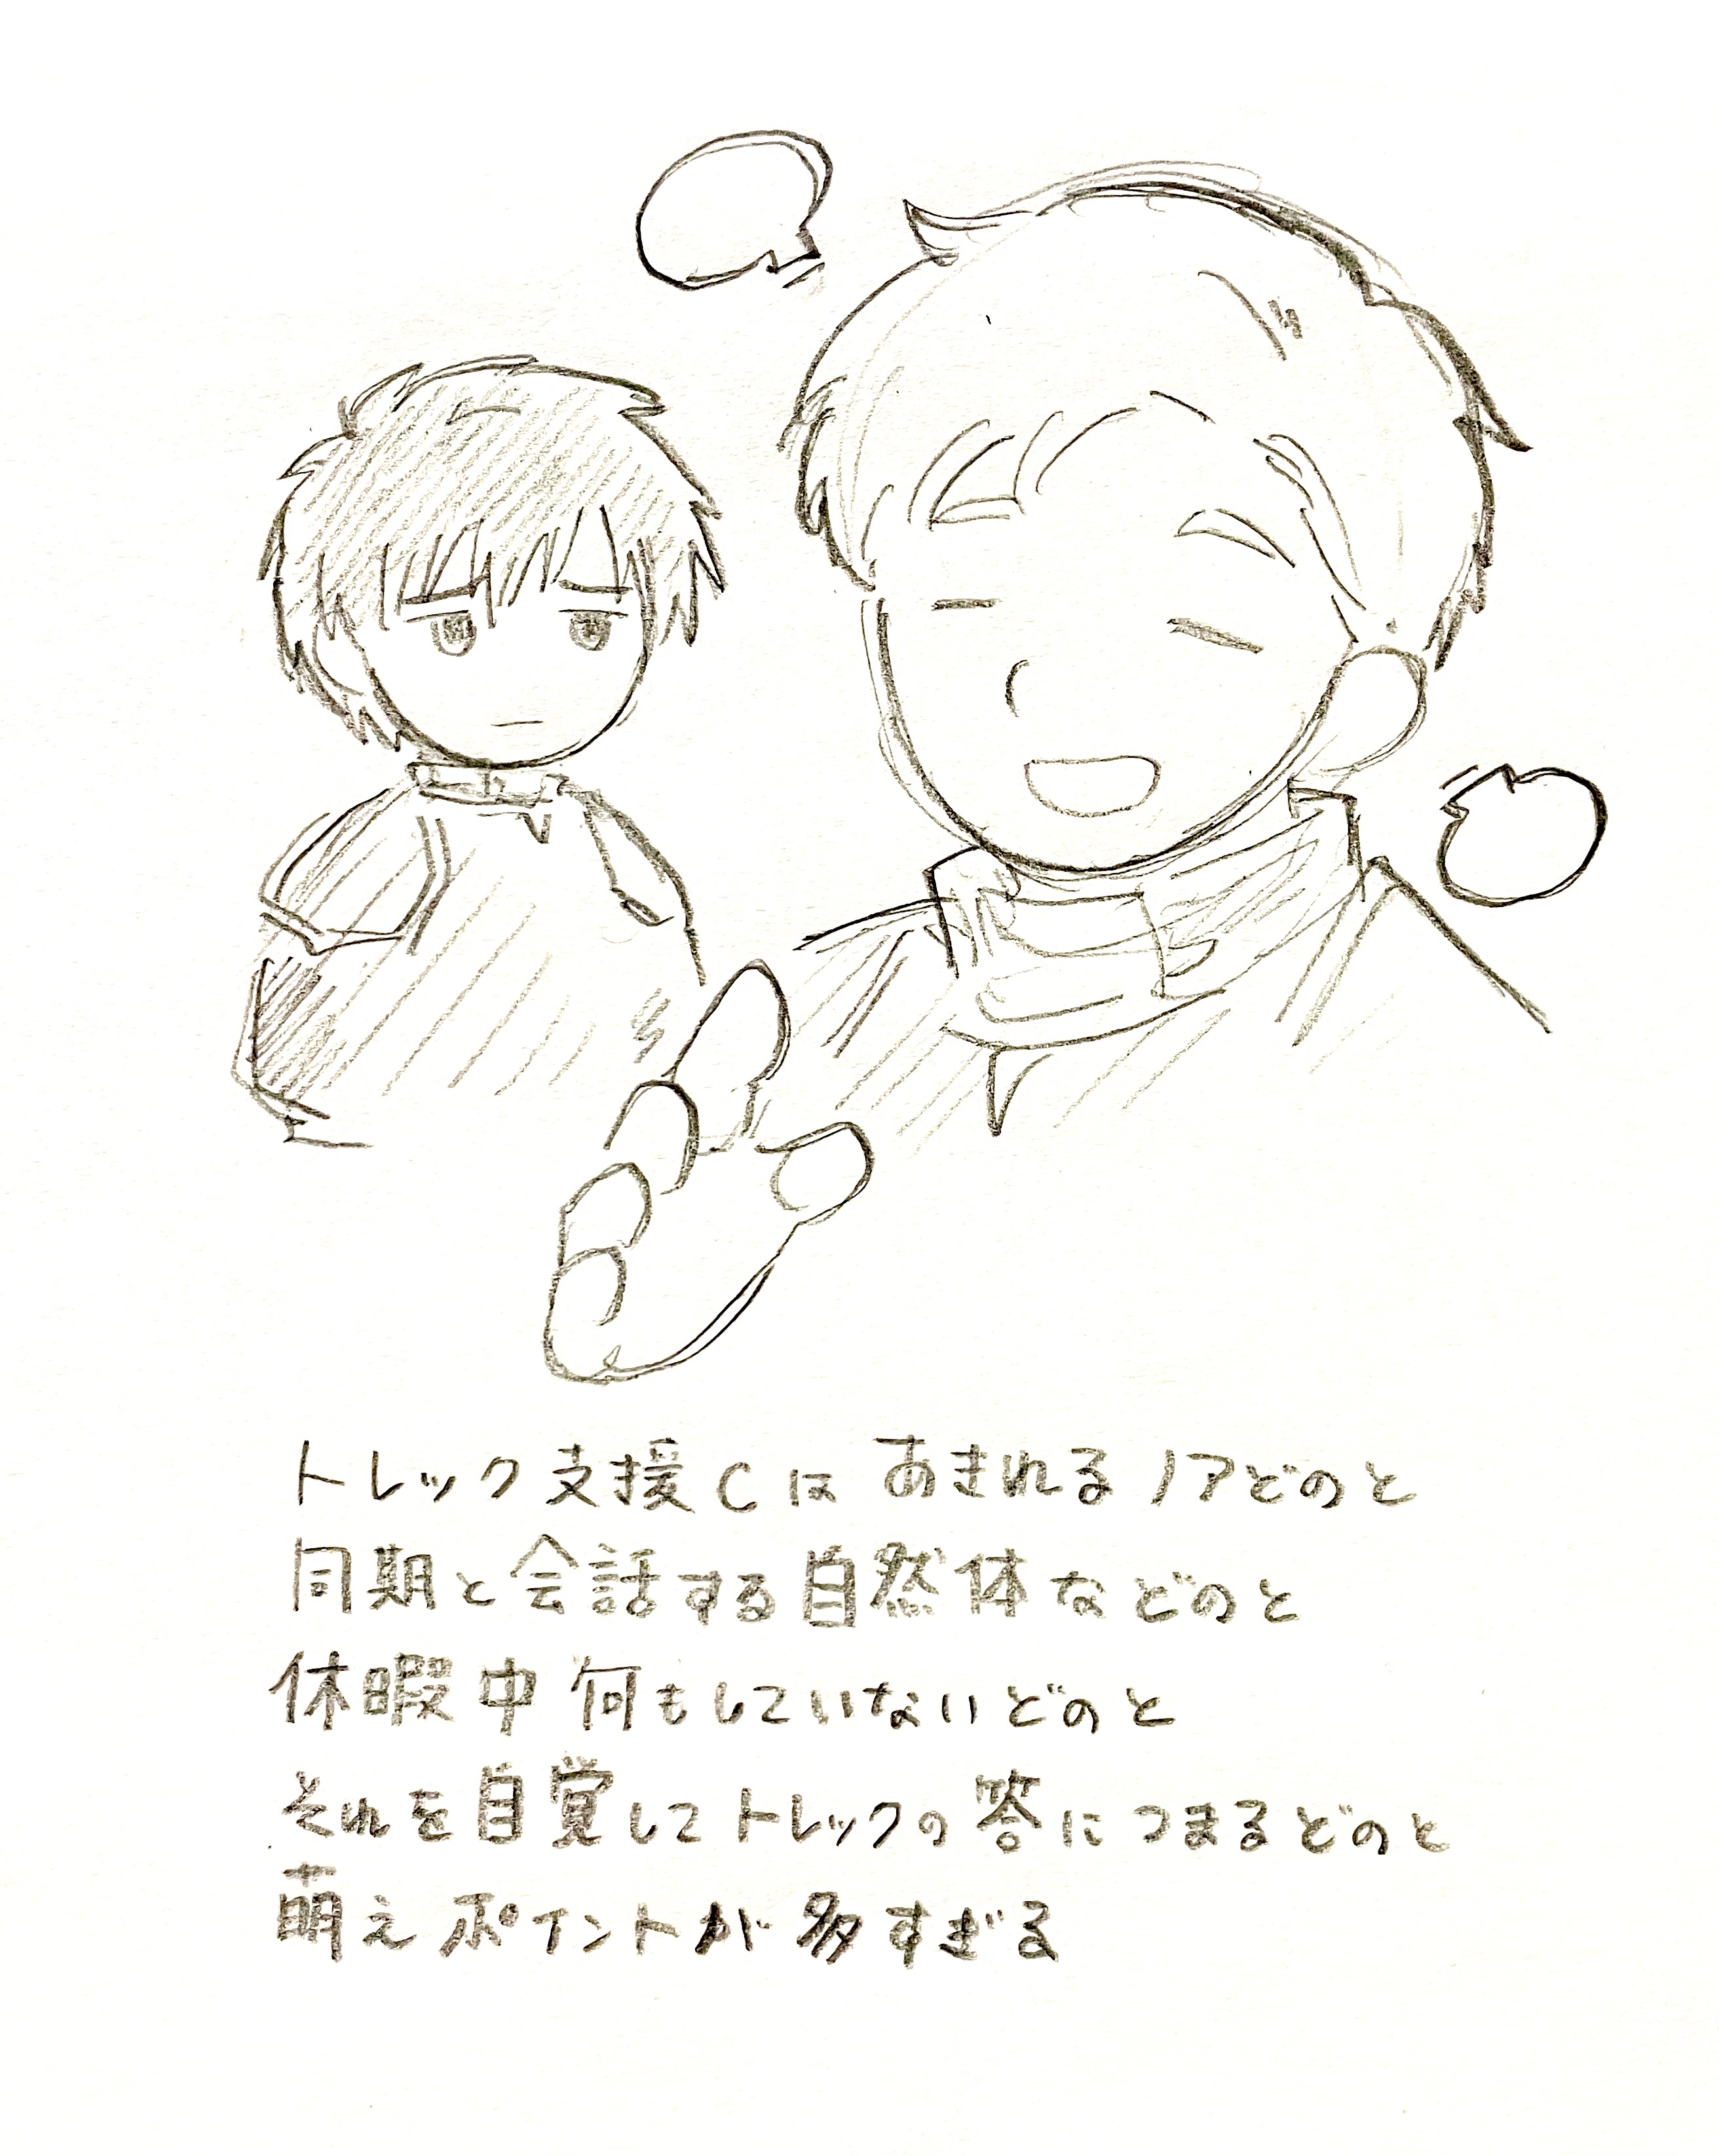 トレック支援Cは あきれるノアどのと
同期と会話する自然体などのと
休暇中何もしていないどのと
それを自覚してトレックの答につまるどのと
萌えポイントが多すぎる